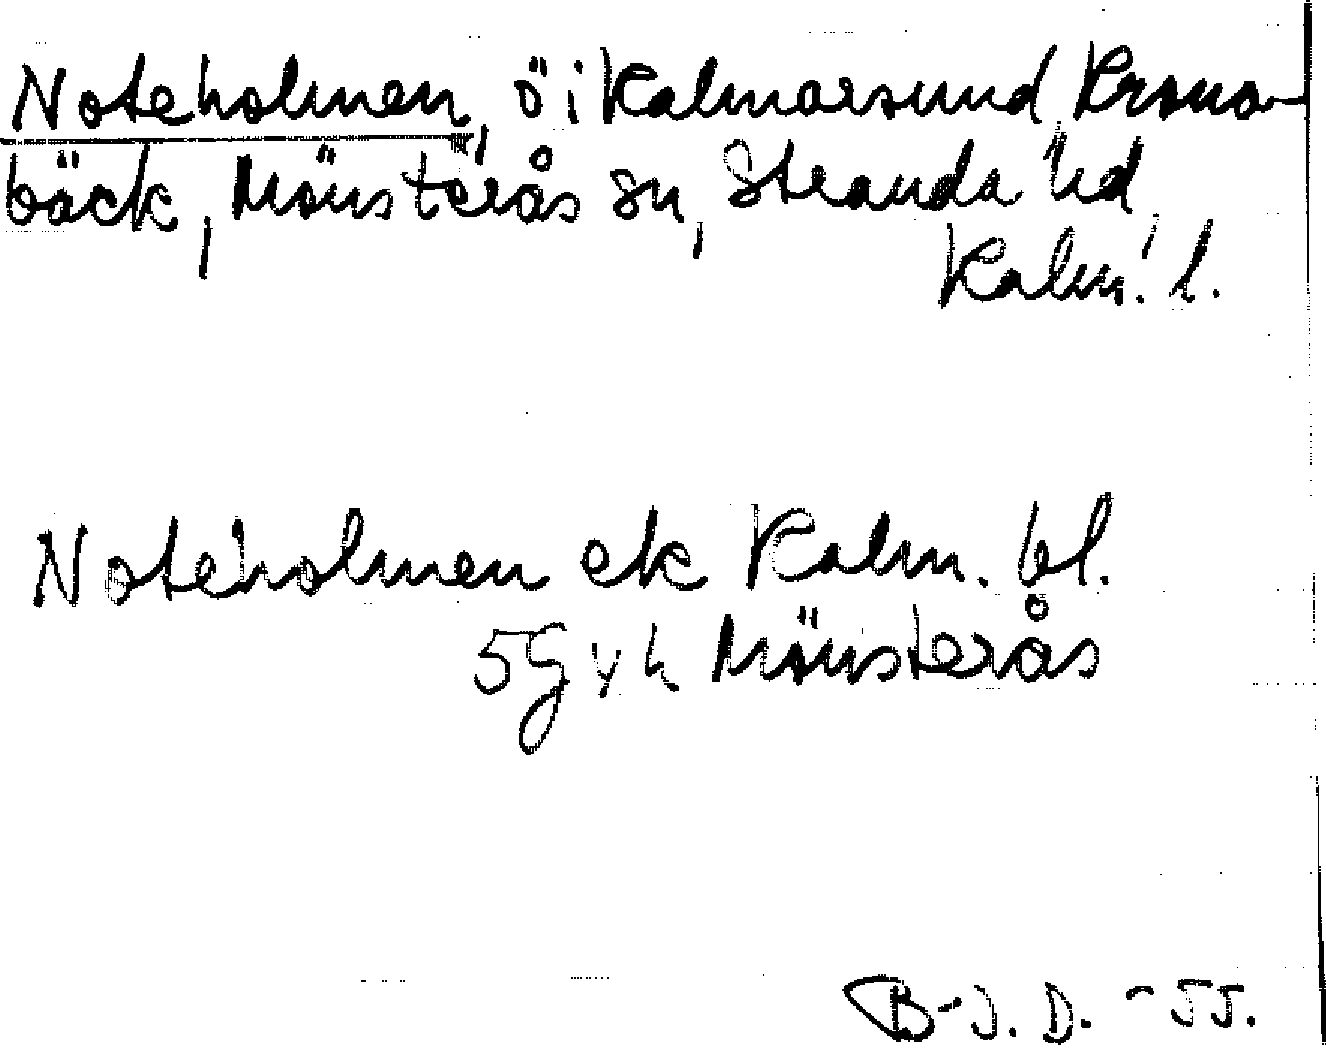 Noteholmen, ö i Kalmarsund, Krona-
bäck, Mönsterås sn, Stranda hd,
Kalm. l.
Noteholmen ek Kalm. bl.
5G vh Mönsterås
B-J. D. -55.